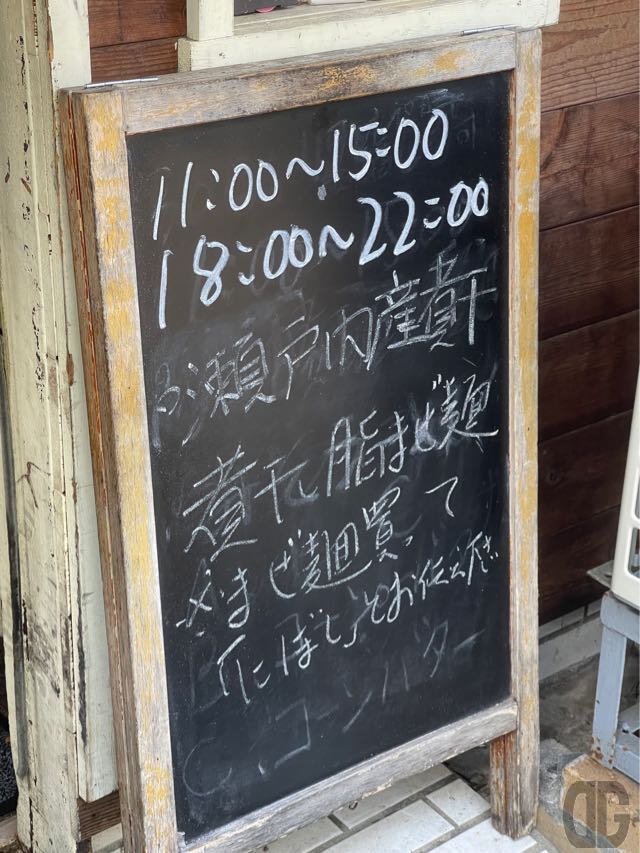 11:00~15:00
18:00~22:00
瀬戸内産煮干
煮干し脂まぜ麺
※まぜ麺買って
「にぼし」とお伝え下さい
コーンバター
DG